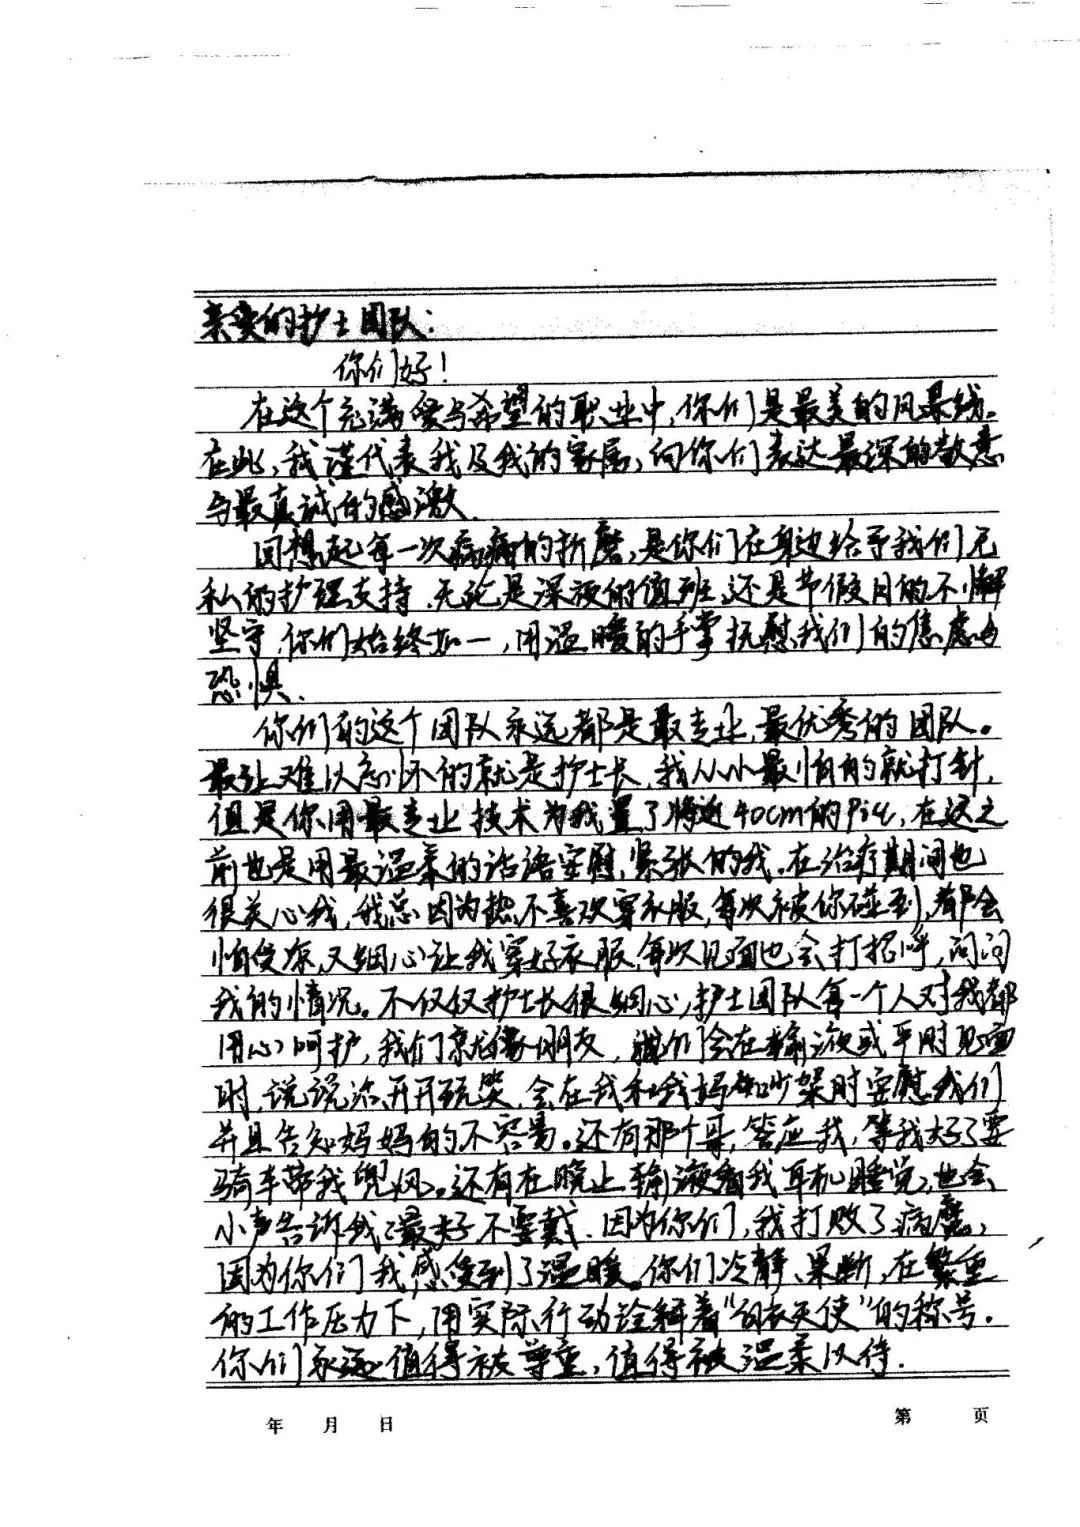 亲爱的护士团队:
你们好!
在这个充满爱与希望的职业中,你们是最美的风景线。
在此,我谨代表我及我的家属,向你们表达最深的敬意
与最真诚的感激.
回想起每一次病痛的折磨,是你们在身边给予我们无
私的护理支持.无论是深夜的值班,还是节假日的不懈
坚守,你们始终如一,用温暖的手掌抚慰我们的焦虑与
恐惧.
你们的这个团队永远都是最专业,最优秀的团队。
最让难以忘怀的就是护士长,我从小最怕的就打针,
但是你用最专业技术为我置了将近40cm的Picc,在这之
前也是用最温柔的话语安慰,紧张的我。在治疗期间也
很关心我,我总因为热不喜欢穿衣服,每次被你碰到,都会
怕受凉,又细心让我穿好衣服,每次见面也会打招呼,问问
我的情况。不仅仅护士长很细心,护士团队每一个人对我都
用心呵护,我们就像朋友,她们会在输液或平时见面
时,说说治,开开玩笑,会在我和我妈妈吵架时安慰我们
并且告知妈妈的不容易。还有那个哥,答应我,等我好了要
骑车带我兜风。还有在晚上输液看我耳机睡觉,也会
小声告诉我最好不要戴.因为你们,我打败了病魔,
因为你们我感受到了温暖。你们冷静、果断,在繁重
的工作压力下,用实际行动诠释着"白衣天使"的称号.
你们永远值得被尊重,值得被温柔以待.
年 月 日
第 页